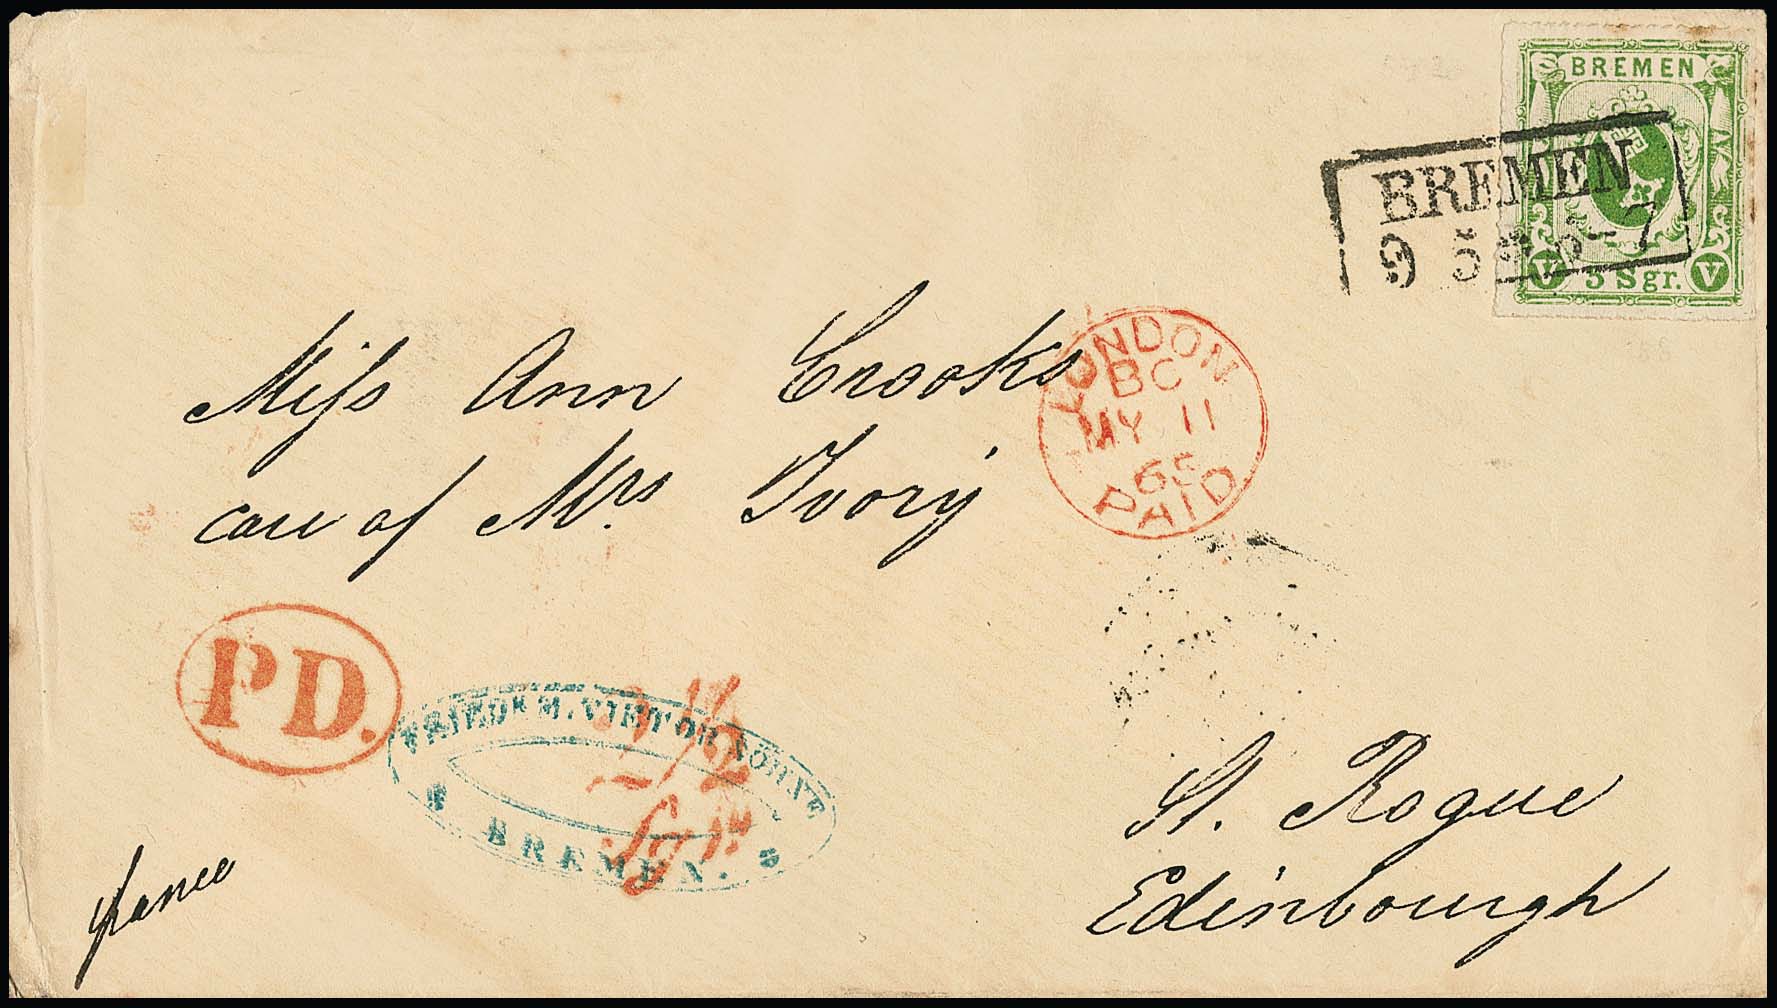 BREMEN
V 5 Sgr. V
BREMEN
9 5 6-7
LONDON
BC
MY 11
65
PAID
Miſs Ann Crooks
care of Mrs Ivory
PD.
FRIEDR M. VIETOR SÖHNE
BREMEN.
1/2
Sgr
franco
St. Roque
Edinbourgh